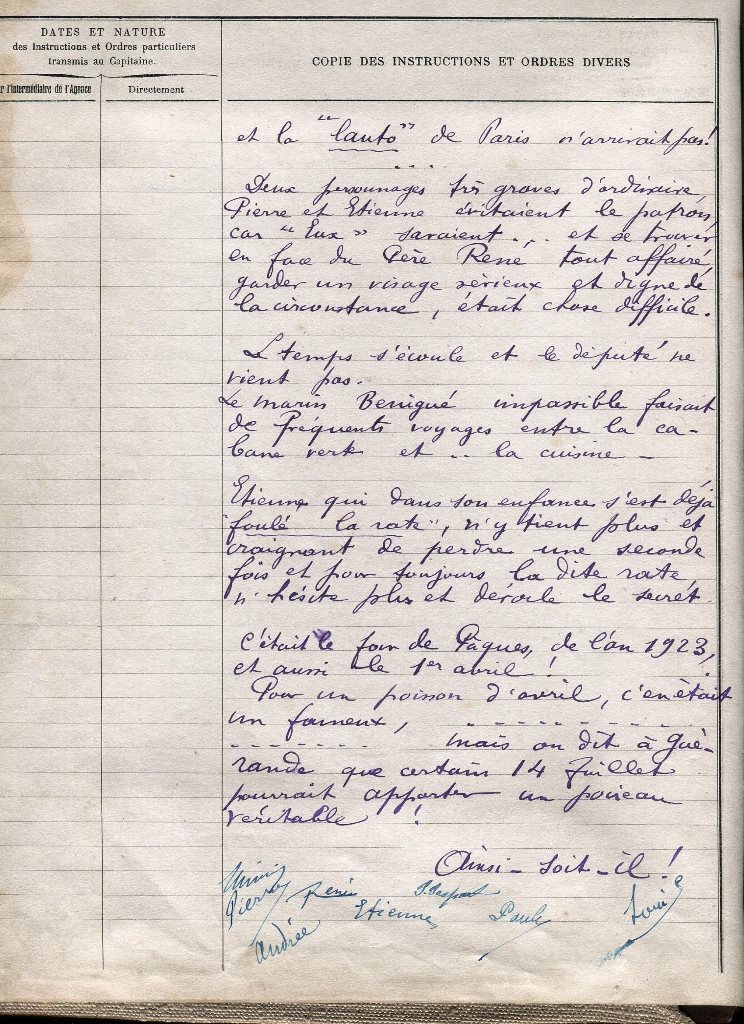 DATES ET NATURE
des Instructions et Ordres particuliers
transmis au Capitaine.
r l'intermédiaire de l'Agence
Directement
COPIE DES INSTRUCTIONS ET ORDRES DIVERS
et la "lauto" de Paris n'arrivait pas!
. . . .
Deux personnages très graves d'ordinaire,
Pierre et Etienne évitaient le patron,
car "Eux" savaient ... et se trouver
en face du Père René tout affairé,
garder un visage sérieux et digne de
la circonstance, était chose difficile.
Le temps s'écoule et le député ne
vient pas.
Le marin Benigué impassible faisait
de fréquents voyages entre la ca-
bane verte et .. la cuisine -
Etienne qui dans son enfance s'est déjà
"foulé la rate", n'y tient plus et
craignant de perdre une seconde
fois et pour toujours la dite rate,
n'hésite plus et dévoile le secret.
C'était le jour de Pâques, de l'an 1923,
et aussi le 1er avril !
Pour un poisson d'avril, c'en était
un fameux, - - - - - - - - - -
- - - - - - - - mais on dit à Gué-
rande que certain 14 Juillet
pourrait apporter un poireau
véritable !
Ainsi-soit-il !
Pierre René Etienne Paule
Andrée